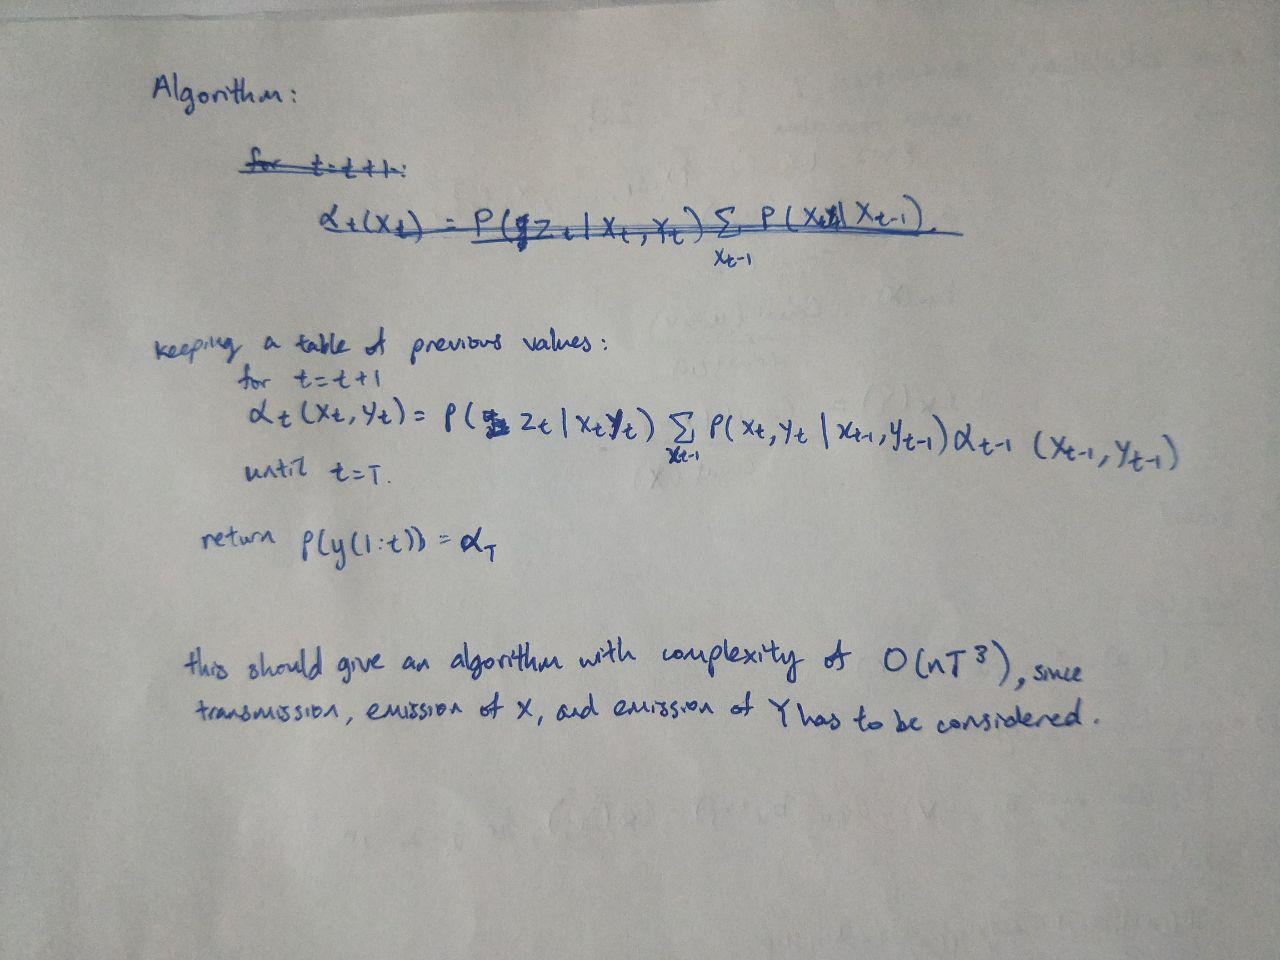 Algorithm:
for t=t+1:
α_t(X_t) = P(z_t | X_t, Y_t) Σ_{X_{t-1}} P(X_t | X_{t-1}).
keeping a table of previous values:
for t=t+1
α_t(X_t, Y_t) = P(z_t | X_t Y_t) Σ_{X_{t-1}} P(X_t, Y_t | X_{t-1}, Y_{t-1}) α_{t-1} (X_{t-1}, Y_{t-1})
until t=T.
return P(y(1:t)) = α_T
this should give an algorithm with complexity of O(nT³), since
transmission, emission of X, and emission of Y has to be considered.